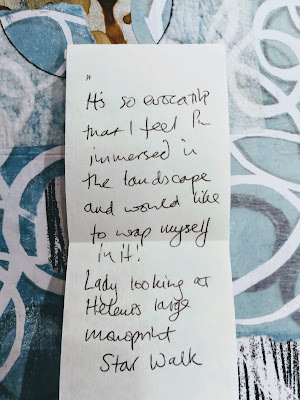 "
It's so evocative
that I feel I'm
immersed in
the landscape
and would like
to wrap myself
in it!
Lady looking at
Helen's large
monoprint
Star Walk